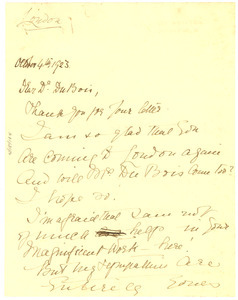 London
October 4th 1923
Dear Dr. Du Bois,
Thank you for your letter.
I am so glad that you
are coming to London again
and will Mrs Du Bois come too?
I hope so.
I'm afraid that I am not
of much help in your
magnificent work here!
But my sympathies are
entirely yours